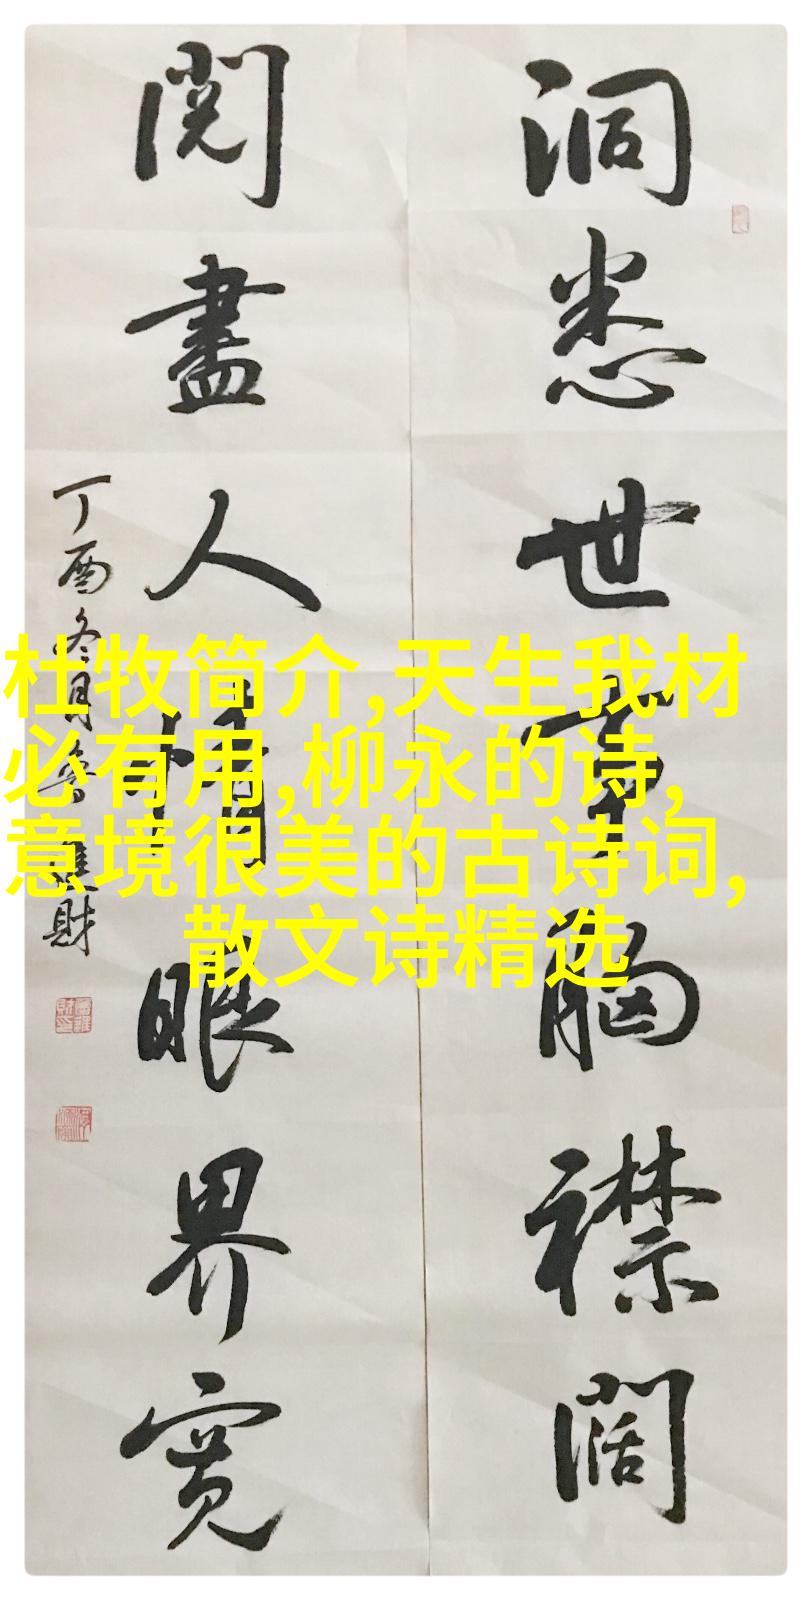 洞悉世事胸襟阔
阅尽人情眼界宽
丁酉冬月鲁進财
杜牧简介,天生我材
必有用,柳永的诗,
意境很美的古诗词,
散文诗精选